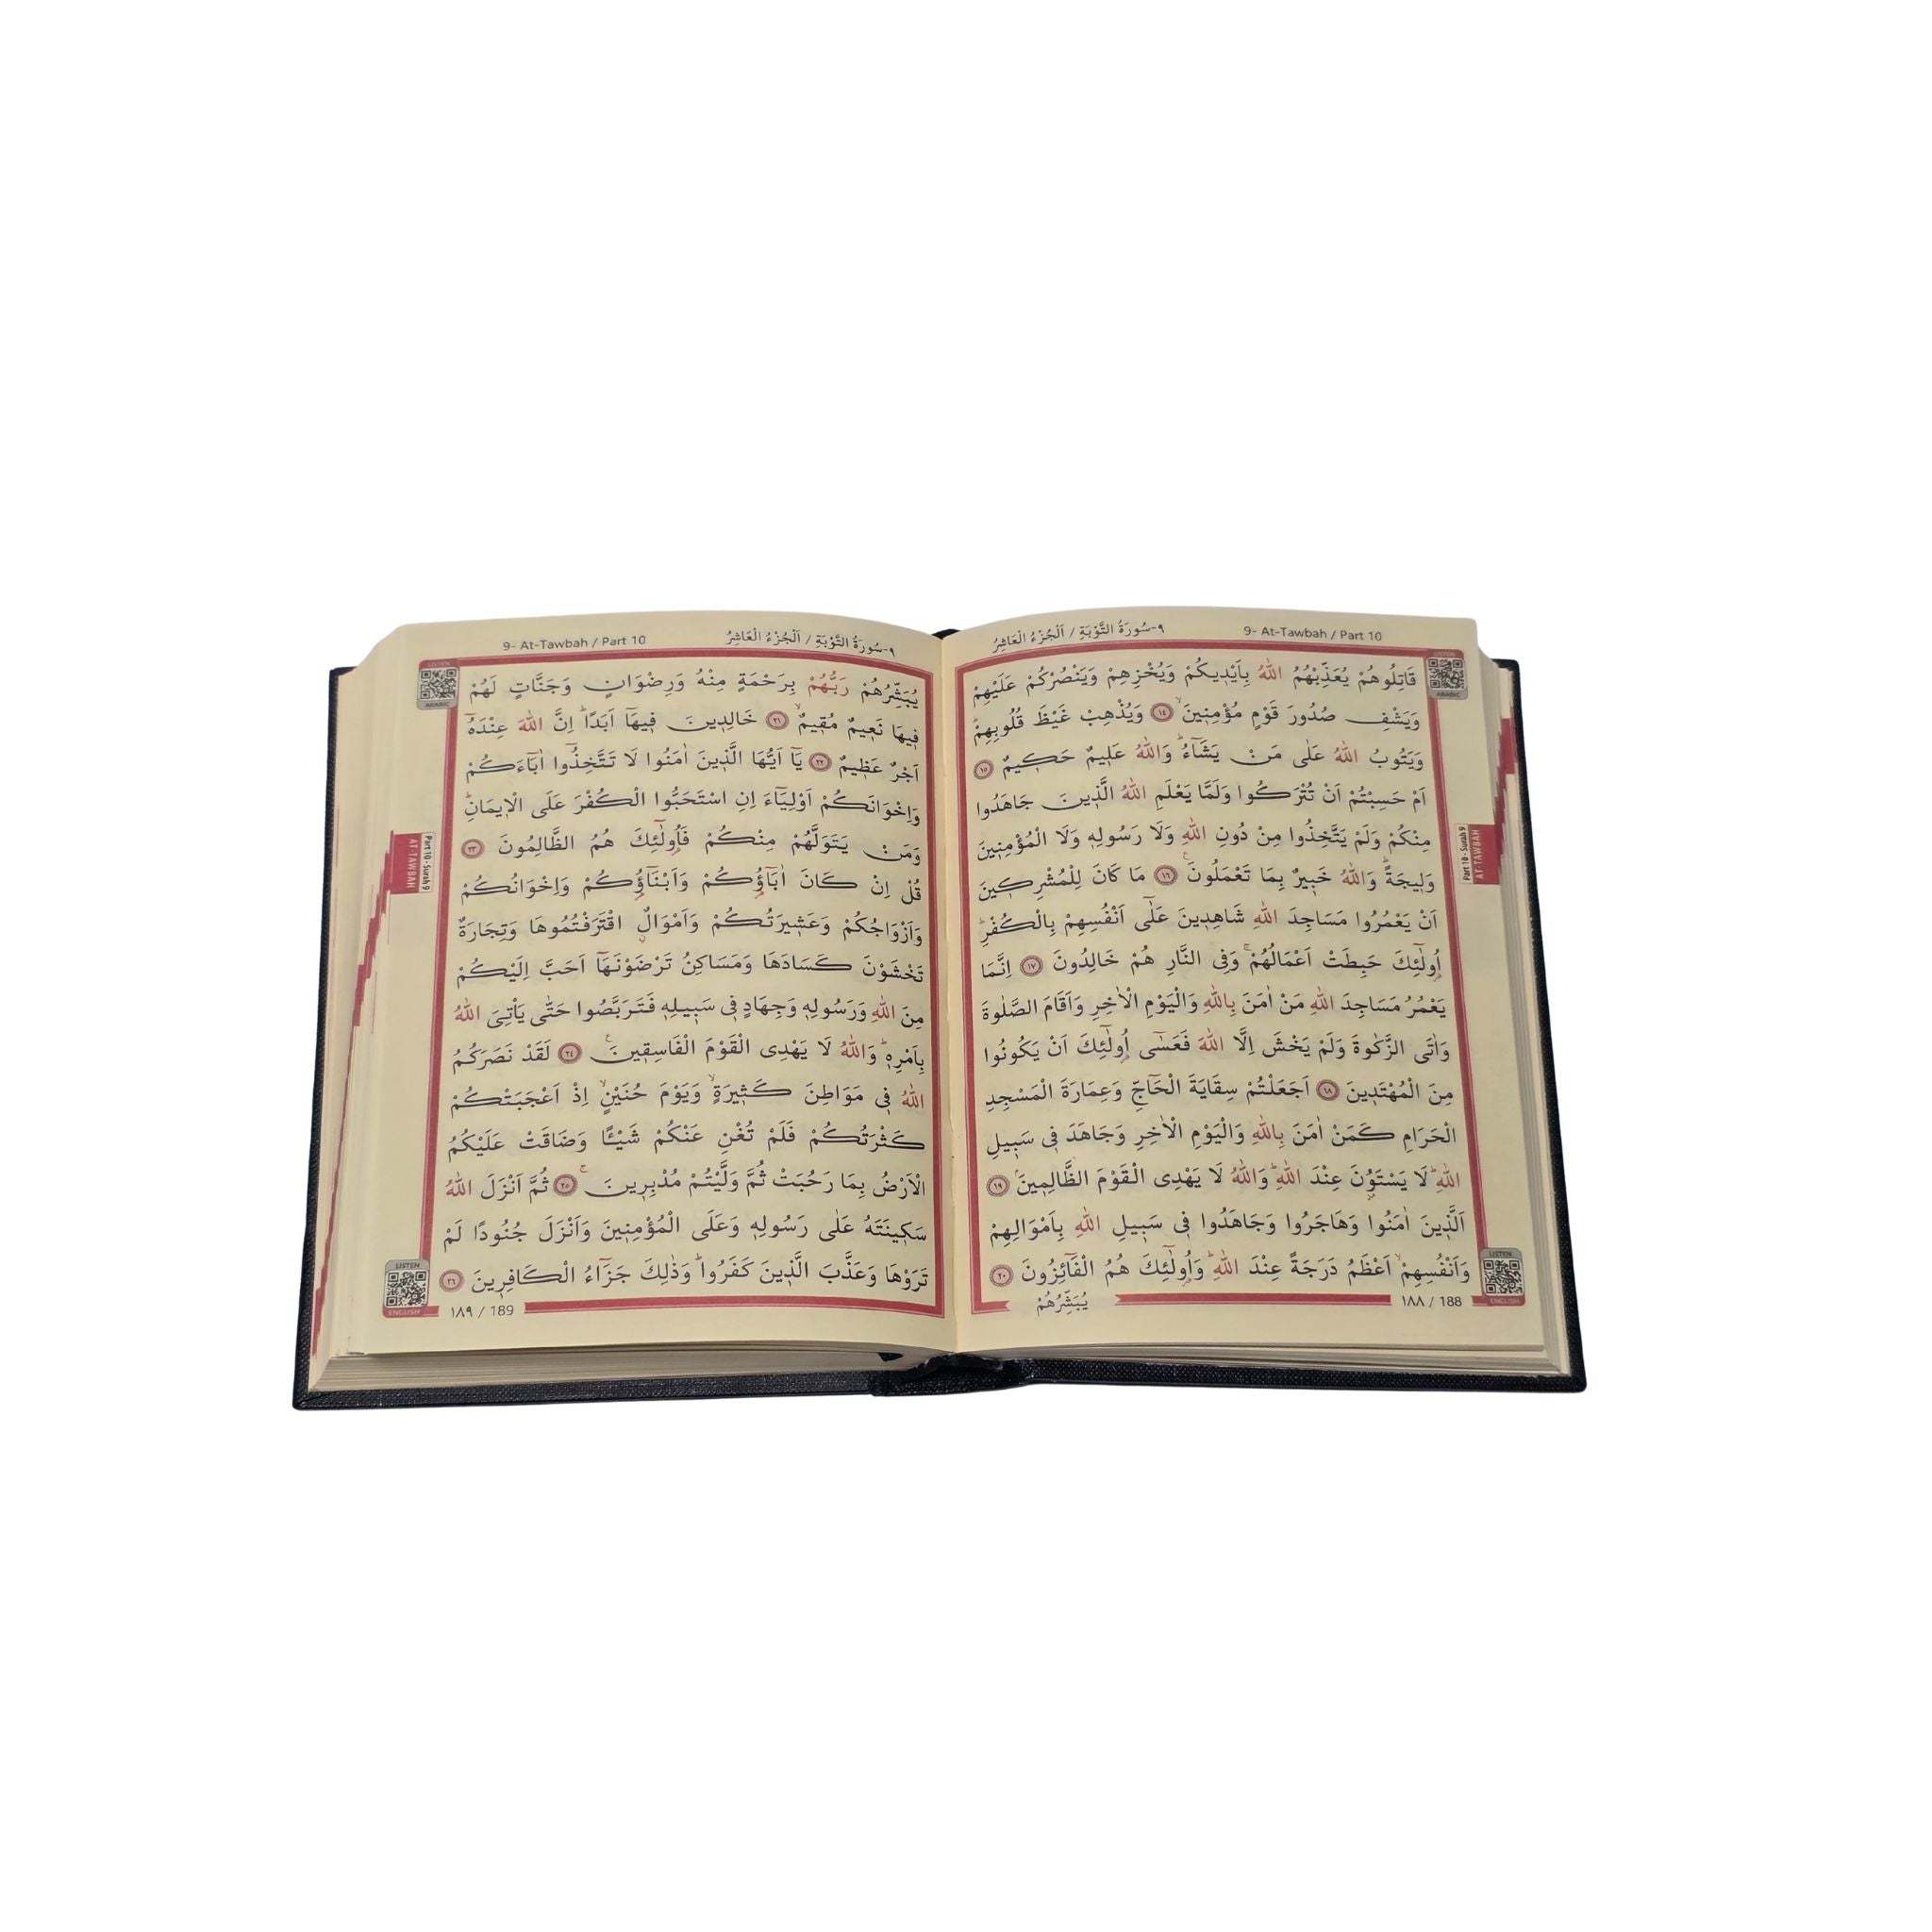 ٩-سُورَةُ التَّوْبَةِ / اَلْجُزْءُ الْعَاشِرُ 9- At-Tawbah / Part 10
LISTEN
ARABIC
قَاتِلُوهُمْ يُعَذِّبْهُمُ اللّٰهُ بِاَيْدٖيكُمْ وَيُخْزِهِمْ وَيَنْصُرْكُمْ عَلَيْهِمْ
وَيَشْفِ صُدُورَ قَوْمٍ مُؤْمِنٖينَۙ ﴿١٤﴾ وَيُذْهِبْ غَيْظَ قُلُوبِهِمْؕ
وَيَتُوبُ اللّٰهُ عَلٰى مَنْ يَشَٓاءُؕ وَاللّٰهُ عَلٖيمٌ حَكٖيمٌ ﴿١٥﴾
اَمْ حَسِبْتُمْ اَنْ تُتْرَكُوا وَلَمَّا يَعْلَمِ اللّٰهُ الَّذٖينَ جَاهَدُوا
مِنْكُمْ وَلَمْ يَتَّخِذُوا مِنْ دُونِ اللّٰهِ وَلَا رَسُولِهٖ وَلَا الْمُؤْمِنٖينَ
وَلٖيجَةًؕ وَاللّٰهُ خَبٖيرٌ بِمَا تَعْمَلُونَࣖ ﴿١٦﴾ مَا كَانَ لِلْمُشْرِكٖينَ
اَنْ يَعْمُرُوا مَسَاجِدَ اللّٰهِ شَاهِدٖينَ عَلٰٓى اَنْفُسِهِمْ بِالْكُفْرِؕ
اُو۬لٰٓئِكَ حَبِطَتْ اَعْمَالُهُمْۚ وَفِى النَّارِ هُمْ خَالِدُونَ ﴿١٧﴾ اِنَّمَا
يَعْمُرُ مَسَاجِدَ اللّٰهِ مَنْ اٰمَنَ بِاللّٰهِ وَالْيَوْمِ الْاٰخِرِ وَاَقَامَ الصَّلٰوةَ
وَاٰتَى الزَّكٰوةَ وَلَمْ يَخْشَ اِلَّا اللّٰهَ فَعَسٰٓى اُو۬لٰٓئِكَ اَنْ يَكُونُوا
مِنَ الْمُهْتَدٖينَ ﴿١٨﴾ اَجَعَلْتُمْ سِقَايَةَ الْحَٓاجِّ وَعِمَارَةَ الْمَسْجِدِ
الْحَرَامِ كَمَنْ اٰمَنَ بِاللّٰهِ وَالْيَوْمِ الْاٰخِرِ وَجَاهَدَ فٖى سَبٖيلِ
اللّٰهِؕ لَا يَسْتَوُ۫نَ عِنْدَ اللّٰهِؕ وَاللّٰهُ لَا يَهْدِى الْقَوْمَ الظَّالِمٖينَۘ ﴿١٩﴾
اَلَّذٖينَ اٰمَنُوا وَهَاجَرُوا وَجَاهَدُوا فٖى سَبٖيلِ اللّٰهِ بِاَمْوَالِهِمْ
وَاَنْفُسِهِمْۙ اَعْظَمُ دَرَجَةً عِنْدَ اللّٰهِؕ وَاُو۬لٰٓئِكَ هُمُ الْفَٓائِزُونَ ﴿٢٠﴾
يُبَشِّرُهُمْ
١٨٨ / 188
LISTEN
ENGLISH
Part 10 - Surah 9
AT-TAWBAH
٩-سُورَةُ التَّوْبَةِ / اَلْجُزْءُ الْعَاشِرُ 9- At-Tawbah / Part 10
LISTEN
ARABIC
يُبَشِّرُهُمْ رَبُّهُمْ بِرَحْمَةٍ مِنْهُ وَرِضْوَانٍ وَجَنَّاتٍ لَهُمْ
فٖيهَا نَعٖيمٌ مُقٖيمٌۙ ﴿٢١﴾ خَالِدٖينَ فٖيهَٓا اَبَدًاؕ اِنَّ اللّٰهَ عِنْدَهُٓ
اَجْرٌ عَظٖيمٌ ﴿٢٢﴾ يَٓا اَيُّهَا الَّذٖينَ اٰمَنُوا لَا تَتَّخِذُٓوا اٰبَٓاءَكُمْ
وَاِخْوَانَكُمْ اَوْلِيَٓاءَ اِنِ اسْتَحَبُّوا الْكُفْرَ عَلَى الْاٖيمَانِؕ
وَمَنْ يَتَوَلَّهُمْ مِنْكُمْ فَاُو۬لٰٓئِكَ هُمُ الظَّالِمُونَ ﴿٢٣﴾
قُلْ اِنْ كَانَ اٰبَٓاؤُ۬كُمْ وَاَبْنَٓاؤُ۬كُمْ وَاِخْوَانُكُمْ
وَاَزْوَاجُكُمْ وَعَشٖيرَتُكُمْ وَاَمْوَالٌۨ اقْتَرَفْتُمُوهَا وَتِجَارَةٌ
تَخْشَوْنَ كَسَادَهَا وَمَسَاكِنُ تَرْضَوْنَهَٓا اَحَبَّ اِلَيْكُمْ
مِنَ اللّٰهِ وَرَسُولِهٖ وَجِهَادٍ فٖى سَبٖيلِهٖ فَتَرَبَّصُوا حَتّٰى يَاْتِىَ اللّٰهُ
بِاَمْرِهٖؕ وَاللّٰهُ لَا يَهْدِى الْقَوْمَ الْفَاسِقٖينَࣖ ﴿٢٤﴾ لَقَدْ نَصَرَكُمُ
اللّٰهُ فٖى مَوَاطِنَ كَثٖيرَةٍۙ وَيَوْمَ حُنَيْنٍۙ اِذْ اَعْجَبَتْكُمْ
كَثْرَتُكُمْ فَلَمْ تُغْنِ عَنْكُمْ شَيْـًٔا وَضَاقَتْ عَلَيْكُمُ
الْاَرْضُ بِمَا رَحُبَتْ ثُمَّ وَلَّيْتُمْ مُدْبِرٖينَۚ ﴿٢٥﴾ ثُمَّ اَنْزَلَ اللّٰهُ
سَكٖينَتَهُ عَلٰى رَسُولِهٖ وَعَلَى الْمُؤْمِنٖينَ وَاَنْزَلَ جُنُودًا لَمْ
تَرَوْهَا وَعَذَّبَ الَّذٖينَ كَفَرُواؕ وَذٰلِكَ جَزَٓاءُ الْكَافِرٖينَ ﴿٢٦﴾
١٨٩ / 189
LISTEN
ENGLISH
Part 10 - Surah 9
AT-TAWBAH